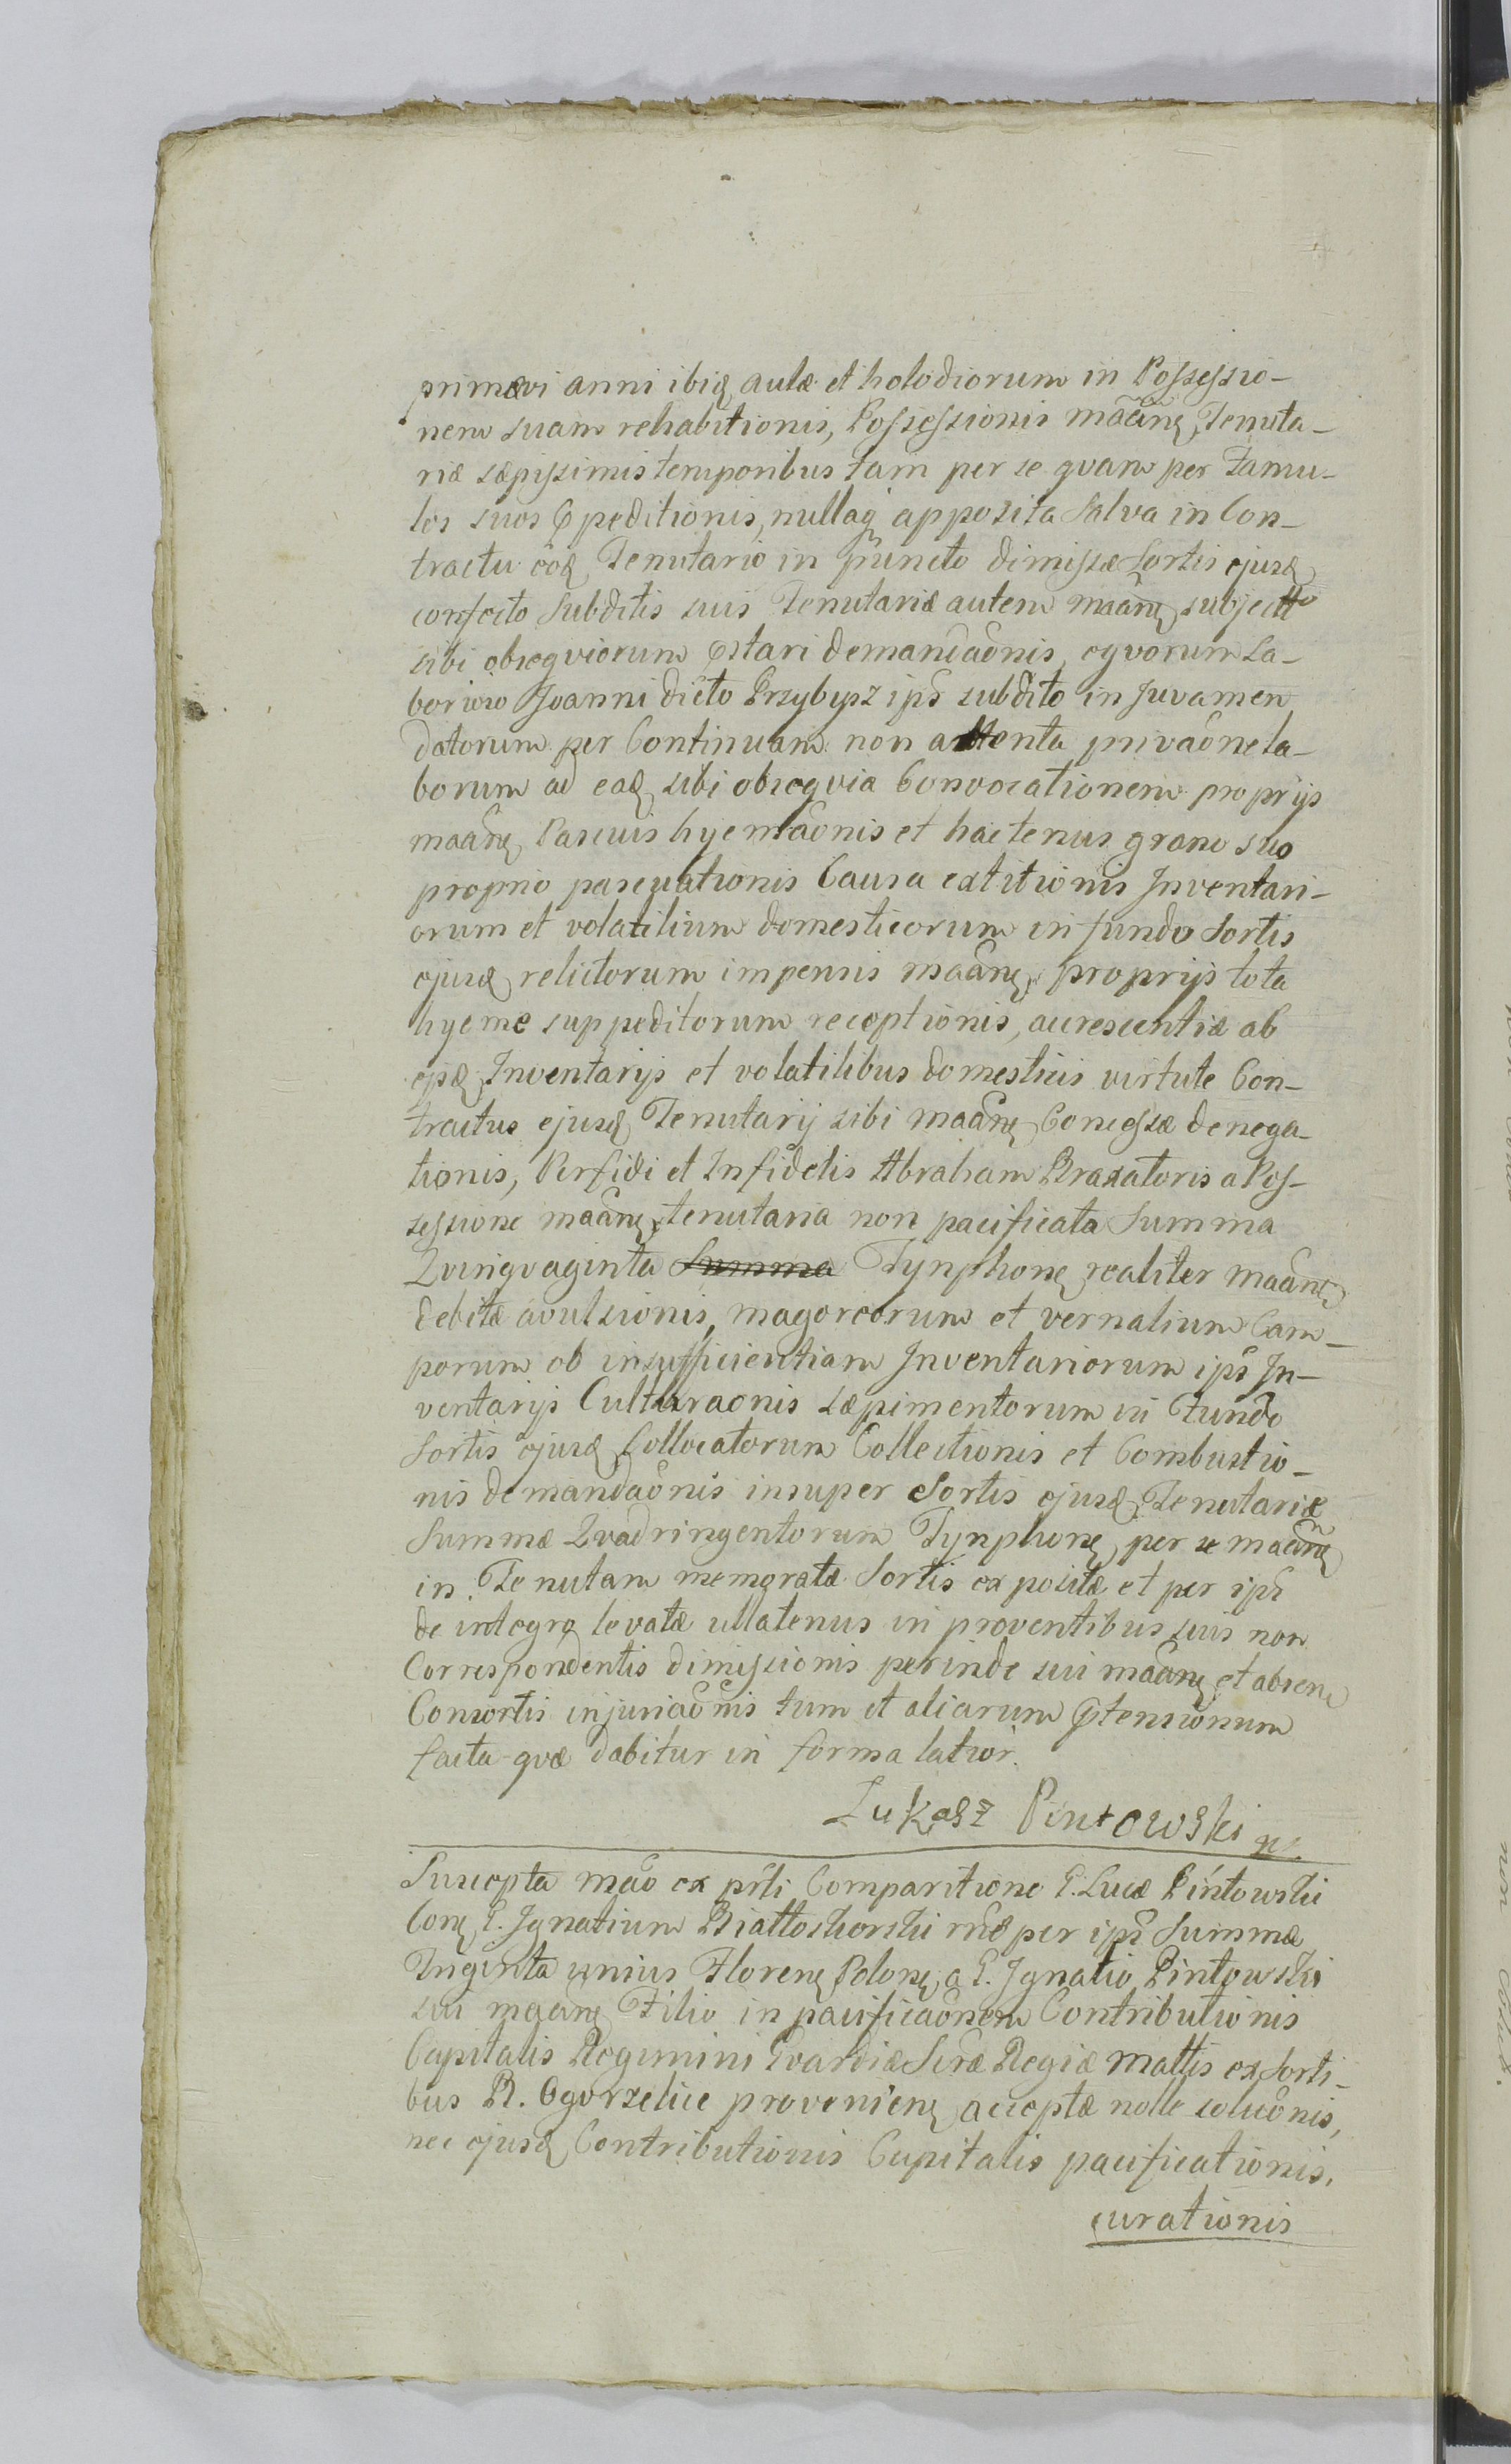 primævi anni ibiq aulæ et holodiorum in Possessio-
nem suam rehabitionis, Possessionis mããnꝭ Tenuta-
riæ sæpissimis temporibus tam per se qvam per Famu-
los suos Expeditionis, nullaq apposita Salva in Con-
tractu eõd Tenutario in puncto dimissæ Sortis ejusd
confecto Subditis suis Tenutariæ autem maãnꝭ subjectto
sibi obseqviorum præstari demandaõnis, eqvorum La-
borioso Joanni dicto Przybysz ips subdito in Juvamen
datorum per Continuam non attenta privaõne la-
borum ad ead sibi obseqvia Convocationem proprijs
maãnꝭ Pascuis hyemaõnis et hactenus grano suo
proprio pascuationis Causa extitionis Inventari-
orum et volatilium domesticorum in fundo Sortis
ejusd relictorum impensis maãnꝭ proprijs tota
hyeme suppeditorum receptionis, acrescentiæ ab
ejsd Inventarijs et volatilibus domesticis virtute Con-
tractus ejusd Tenutarij sibi maãnꝭ Concessæ denega-
tionis, Perfidi et Infidelis Abraham Braxatoris a Pos-
sessione maãnꝭ tenutaria non pacificata Summa
Qvinqvaginta Summa Tynphonꝭ realiter maãnꝭ
debitæ avulsionis, magorcorum et vernalium Cam-
porum ob insufficientiam Inventariorum ips In-
ventarijs Culturaõnis sæpimentorum in Fundo
Sortis ejusd Collocatorum Collectionis et Combustio-
nis demandaõnis insuper Sortis ejusd Tenutariæ
Summæ Qvadringentorum Tynphonꝭ per se maãnꝭ
in Tenutam memoratæ Sortis expositæ et per ips
de integro levatæ ullatenus in proventibus suis non
Correspondentis dimissionis perinde sui maãnꝭ et absenꝭ
Consortis injuriaõnis tum et aliarum prætensionum
facta qvæ dabitur in forma latior.
Lukasz Pintowski
Suscepta mão ex prsti Comparitione G. Lucæ Pintowski
Conꝭ G. Ignatium Białłoskorski rñe per ips Summæ
Triginta unius Florenꝭ Polonꝭ a G. Ignatio Pintowski
sui maãnꝭ Filio in pacificaõnem Contributionis
Capitalis Regimini Gvardiæ Seræ Regiæ Mattis ex Sorti-
bus B. Ogorzelice provenienꝭ acceptæ nolle soluõnis,
nec ejusd Contributionis Capitalis pacificationis,
curationis